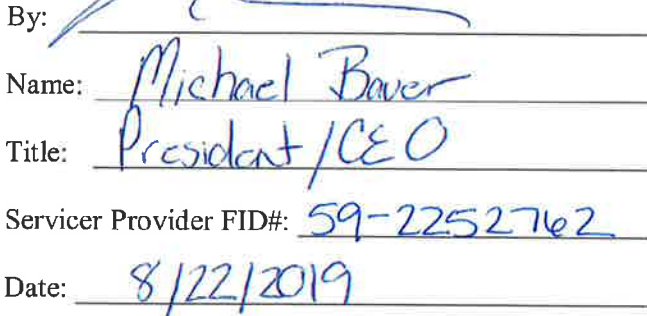 By:
Name: Michael Bauer
Title: President/CEO
Servicer Provider FID#: 59-2252762
Date: 8/22/2019